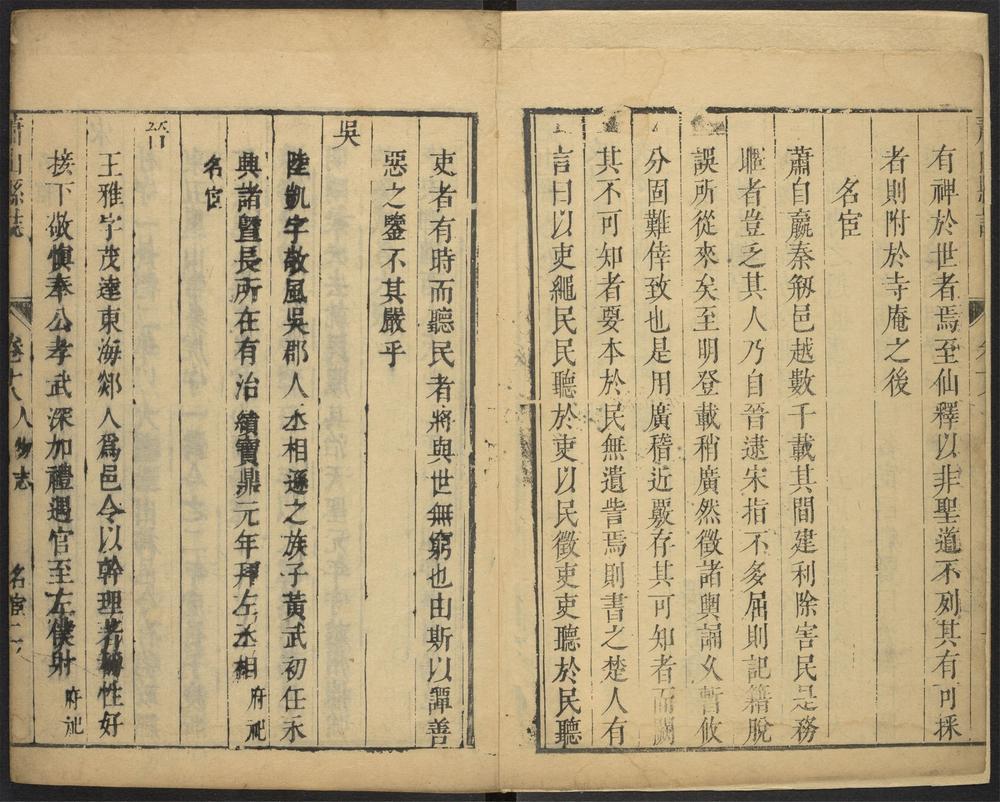 有裨於世者焉至仙釋以非聖道不列其有可採
者則附於寺庵之後
名宦
蕭自嬴秦剏邑越數千載其間建利除害民是務
者豈乏其人乃自晉逮宋指不多屈則記籍脫
誤所從來矣至明登載稍廣然徵諸輿誦久暫攸
分固難倖致也是用廣稽近覈存其可知者而闕
其不可知者要本於民無遺訾焉則書之楚人有
言曰以吏繩民民聽於吏以民徵吏吏聽於民聽
吏者有時而聽民者將與世無窮也由斯以譚善
惡之鑒不其嚴乎
吳
陸凱字敬風吳郡人丞相遜之族子黃武初任永
興諸暨長所在有治績寶鼎元年拜左丞相 府祀
名宦
王雅字茂達東海郯人爲邑令以幹理著稱性好
接下敬慎奉公孝武深加禮遇官至左僕射 府祀
蕭山縣誌
卷十八人物志
名宦二